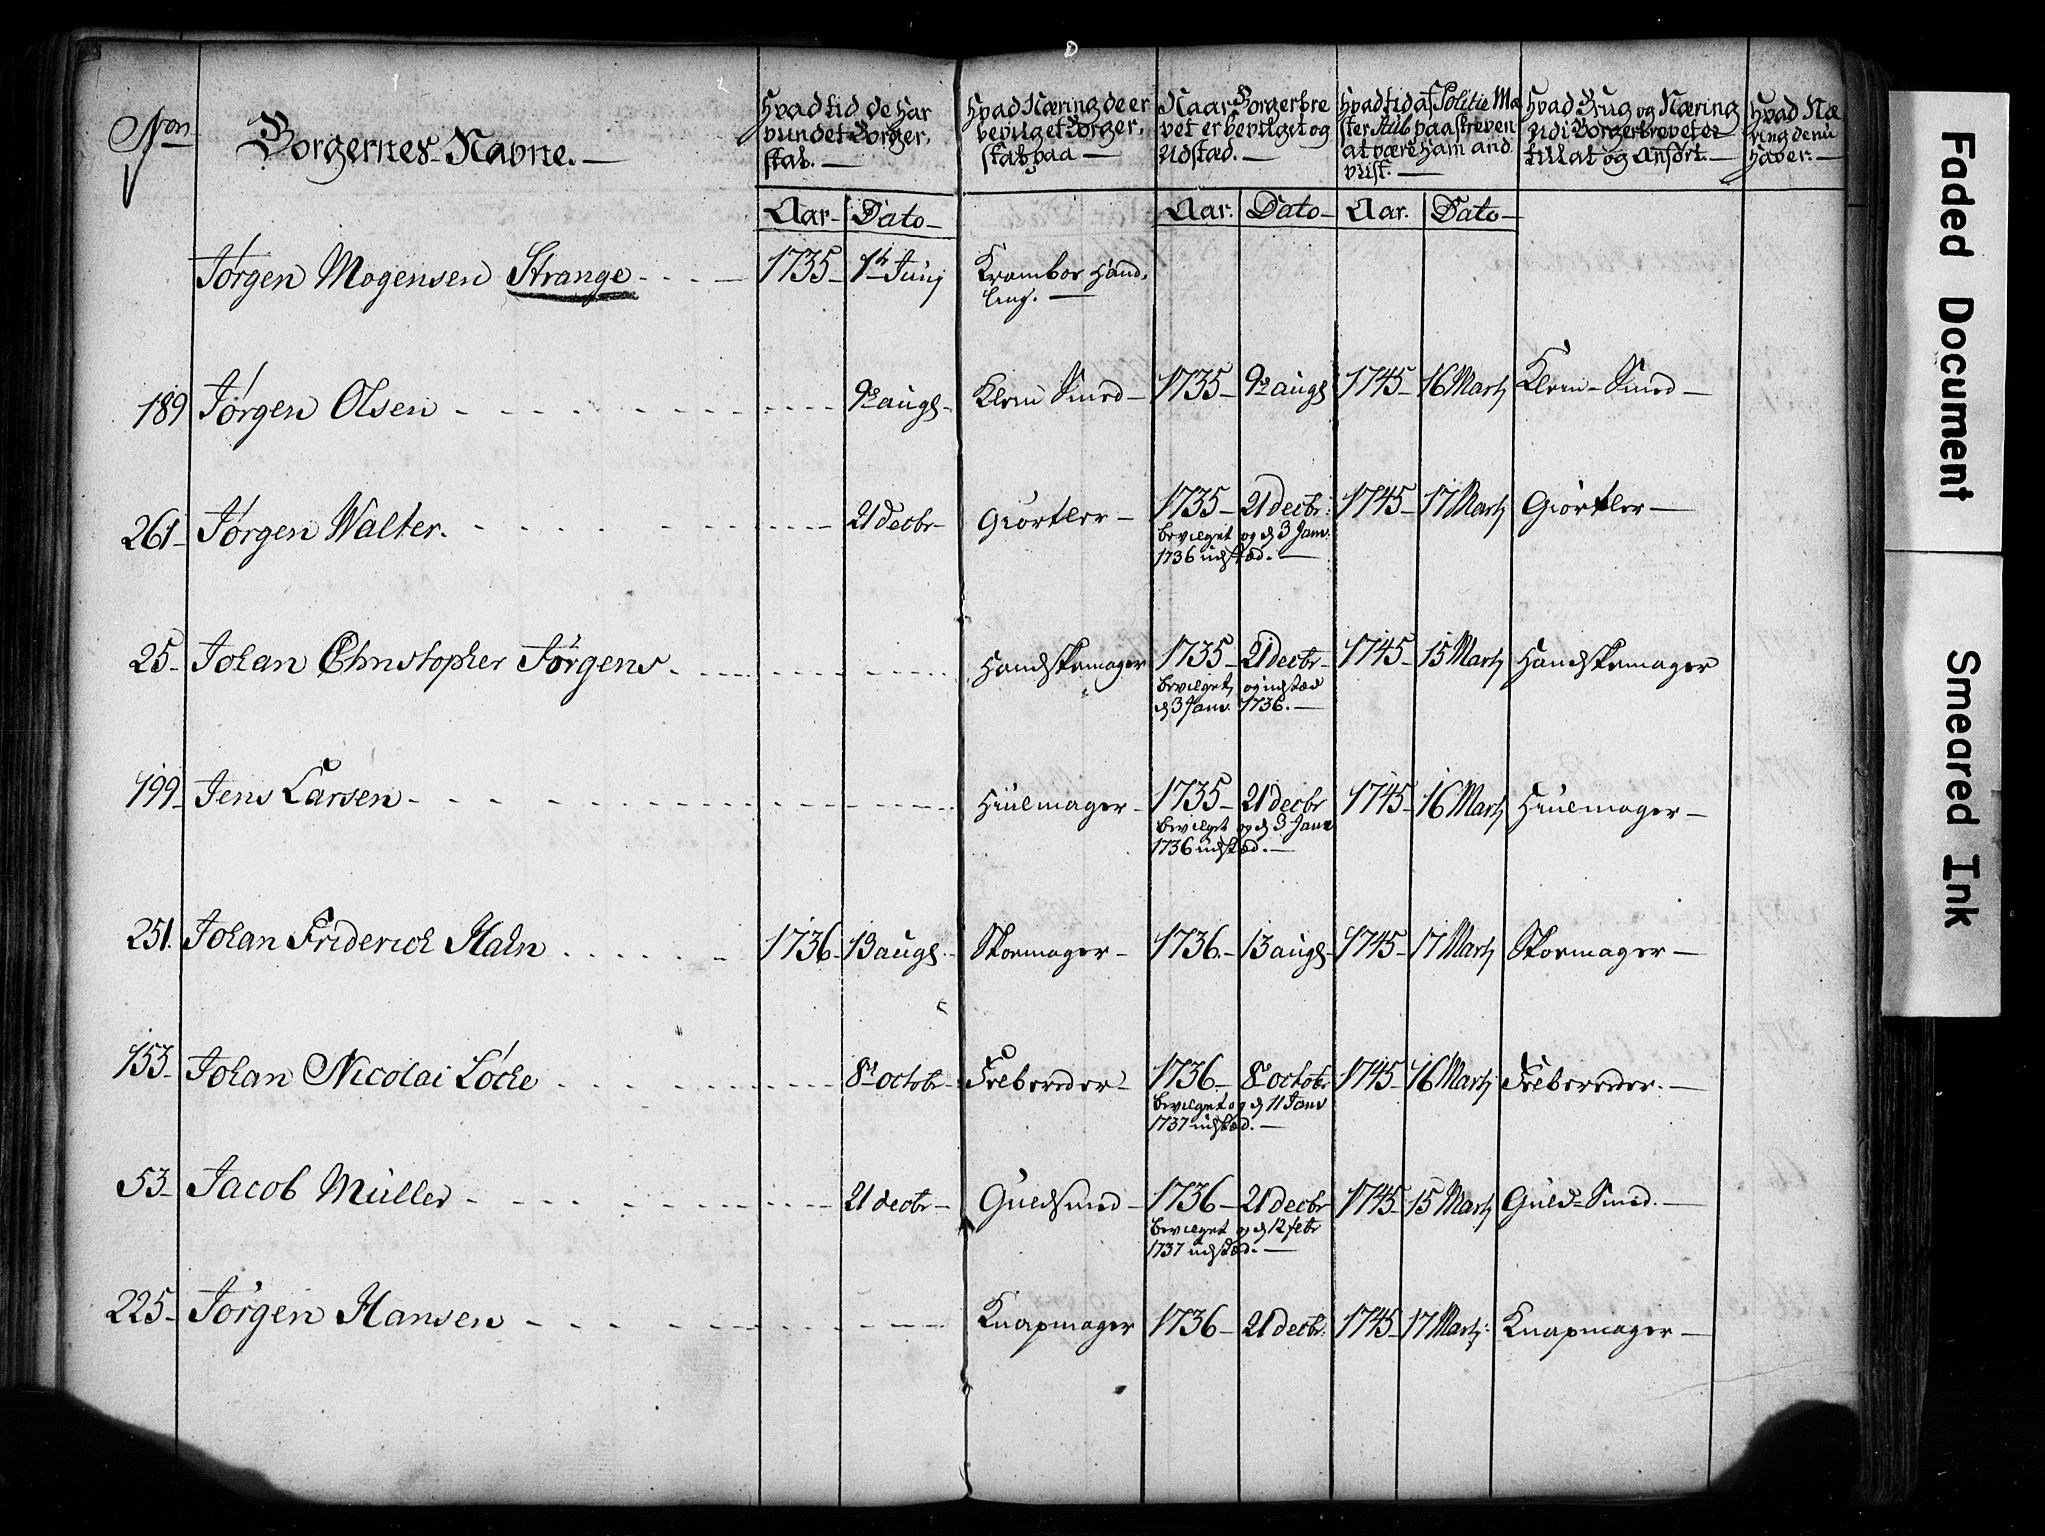 Non
Borgernes Navne.
Hvad tid de har
vundet Borger,
skab.
Hvad Næring de er
bevilget Borger,
skab paa
Naar Borgerbre
vet er bevilget og
Udstæd.
Hvad tid af Politie Mæ
ster Stub paaskreven
at være ham and
viist.
Hvad Brug og Næring
Udi Borgerbrevet er
tillat og Anført.
Hvad Næ
ring de nu
haver.
Aar Dato Aar. Dato Aar. Dato
Jørgen Mogensen Strange 1735 1te Junij Kramboe Hand,
ling.
189 Jørgen Olsen 9de augs Klein Smed 1735 9de augs 1745 16 Martj Klein-Smed
261 Jørgen Walter. 21 decbr Giørtler 1735 21 decbr. 1745 17 Martj Giørtler
bevilget og d 3 Janv.
1736 udstæd.
25 Johan Christopher Jørgens Handskemager 1735 21 decbr 1745 15 Martj Handskemager
bevilget, og udstæd
d 3 Janv. 1736.
199 Jens Larsen Hiulmager 1735 21 decbr 1745 16 Martj Hiulmager
bevilget og d 3 Janv
1736 udstæd.
251. Johan Friderich Hahn 1736 13 augs Skoemager 1736. 13 augs 1745 17 Martj Skoemager
153 Johan Nicolai Löcke 8de octobr Felbereder 1736 8de octobr 1745 16 Martj Felbereder.
bevilget og d 11 Janv
1737 udstæd.
53 Jacob Müller 21 decbr Guldsmed 1736 21 decbr 1745 15 Martj Guld=Smed.
bevilget og d 12 febr
1737 udstæd.
225 Jørgen Hansen Knapmager 1736 21 decbr. 1745 17 Martj: Knapmager
Faded Document
Smeared Ink